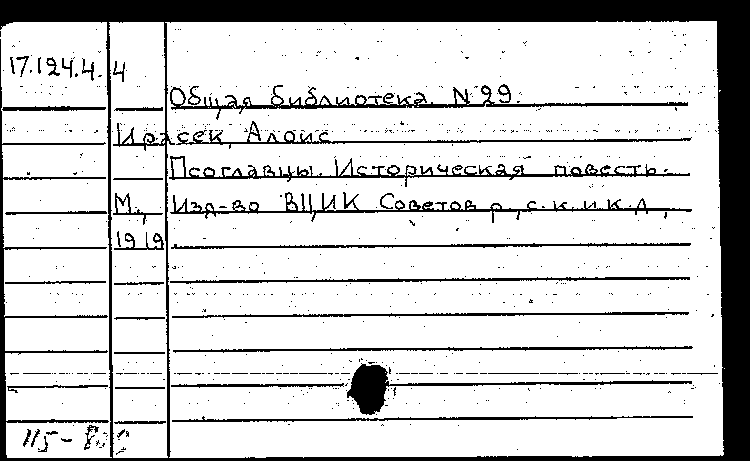 17.124.4.4
Общая библиотека. N 29.
Ирасек, Алоис
Псоглавцы. Историческая повесть.
М., Изд-во ВЦИК Советов р., с. к. и к. д.,
1919.
115-